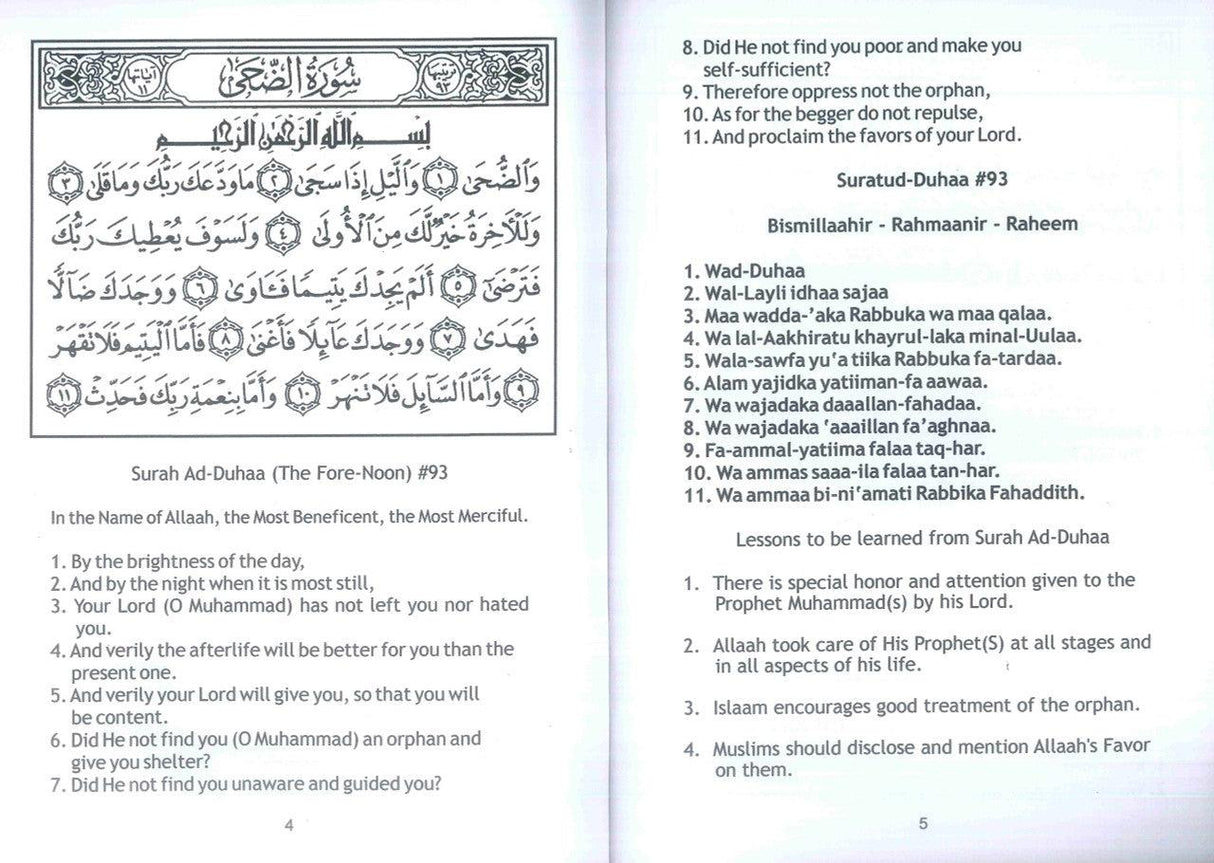 آياتها ١١
سُورَةُ الضُّحَىٰ
ترتيبها ٩٣
بِسْمِ اللَّهِ الرَّحْمَٰنِ الرَّحِيمِ
وَٱلضُّحَىٰ ١ وَٱلَّيۡلِ إِذَا سَجَىٰ ٢ مَا وَدَّعَكَ رَبُّكَ وَمَا قَلَىٰ ٣
وَلَلۡأٓخِرَةُ خَيۡرٌ لَّكَ مِنَ ٱلۡأُولَىٰ ٤ وَلَسَوۡفَ يُعۡطِيكَ رَبُّكَ
فَتَرۡضَىٰٓ ٥ أَلَمۡ يَجِدۡكَ يَتِيمًا فَـَٔاوَىٰ ٦ وَوَجَدَكَ ضَآلًّا
فَهَدَىٰ ٧ وَوَجَدَكَ عَآئِلًا فَأَغۡنَىٰ ٨ فَأَمَّا ٱلۡيَتِيمَ فَلَا تَقۡهَرۡ
٩ وَأَمَّا ٱلسَّآئِلَ فَلَا تَنۡهَرۡ ١٠ وَأَمَّا بِنِعۡمَةِ رَبِّكَ فَحَدِّثۡ ١١
Surah Ad-Duhaa (The Fore-Noon) #93
In the Name of Allaah, the Most Beneficent, the Most Merciful.
1. By the brightness of the day,
2. And by the night when it is most still,
3. Your Lord (O Muhammad) has not left you nor hated
you.
4. And verily the afterlife will be better for you than the
present one.
5. And verily your Lord will give you, so that you will
be content.
6. Did He not find you (O Muhammad) an orphan and
give you shelter?
7. Did He not find you unaware and guided you?
4
8. Did He not find you poor and make you
self-sufficient?
9. Therefore oppress not the orphan,
10. As for the begger do not repulse,
11. And proclaim the favors of your Lord.
Suratud-Duhaa #93
Bismillaahir - Rahmaanir - Raheem
1. Wad-Duhaa
2. Wal-Layli idhaa sajaa
3. Maa wadda-’aka Rabbuka wa maa qalaa.
4. Wa lal-Aakhiratu khayrul-laka minal-Uulaa.
5. Wala-sawfa yu‘a tiika Rabbuka fa-tardaa.
6. Alam yajidka yatiiman-fa aawaa.
7. Wa wajadaka daaallan-fahadaa.
8. Wa wajadaka ‘aaaillan fa’aghnaa.
9. Fa-ammal-yatiima falaa taq-har.
10. Wa ammas saaa-ila falaa tan-har.
11. Wa ammaa bi-ni‘amati Rabbika Fahaddith.
Lessons to be learned from Surah Ad-Duhaa
1. There is special honor and attention given to the
Prophet Muhammad(s) by his Lord.
2. Allaah took care of His Prophet(S) at all stages and
in all aspects of his life.
3. Islaam encourages good treatment of the orphan.
4. Muslims should disclose and mention Allaah's Favor
on them.
5